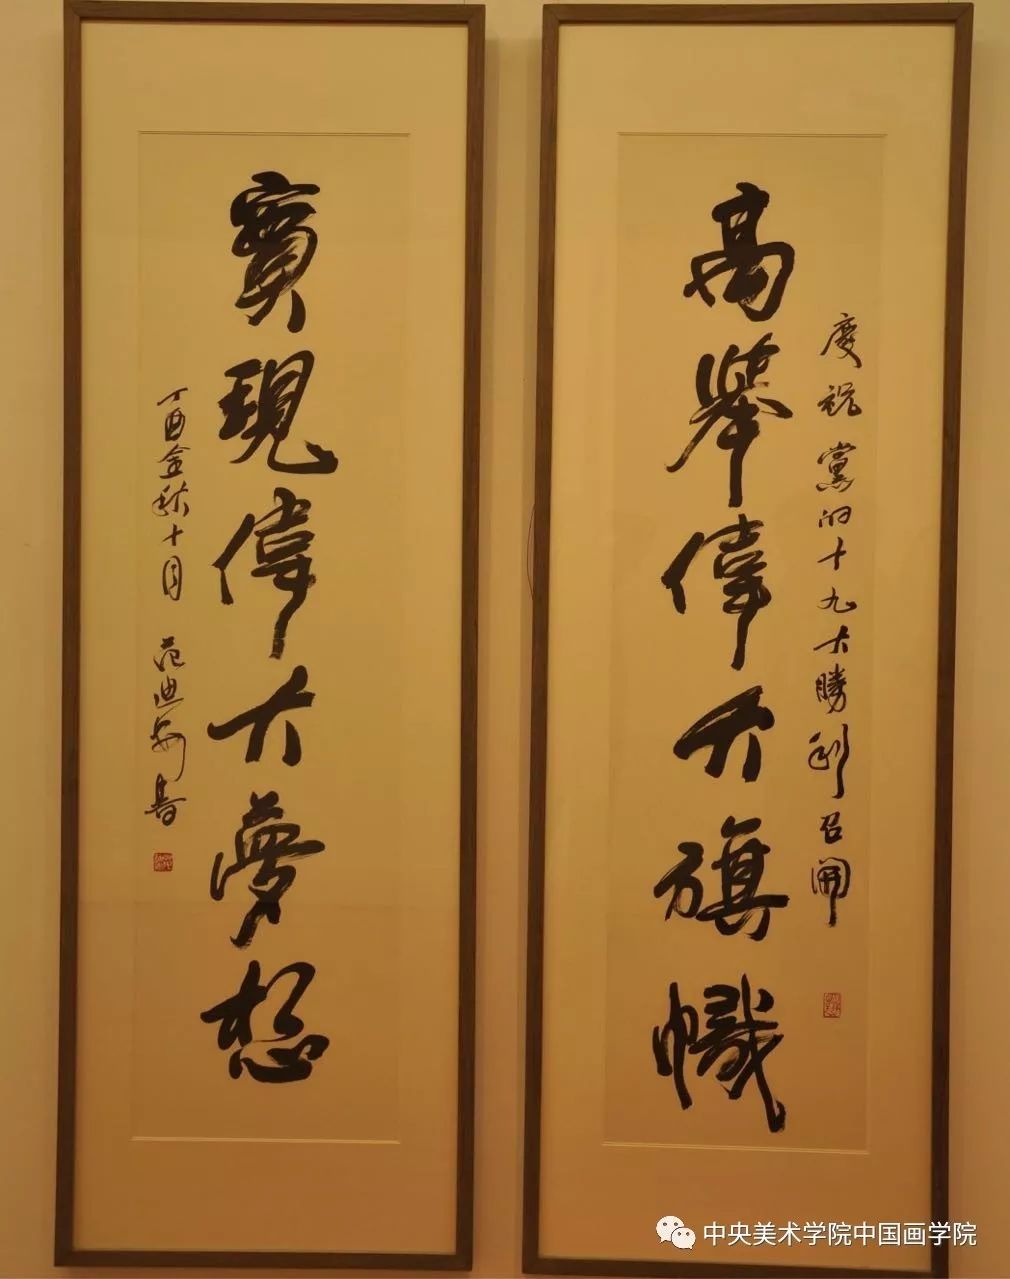 慶祝黨的十九大勝利召開
高舉偉大旗幟
實現偉大夢想
丁酉金秋十月 范迪安書
中央美术学院中国画学院